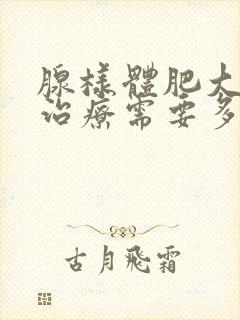 腺樣體肥大
治療需要多
古月飛霜